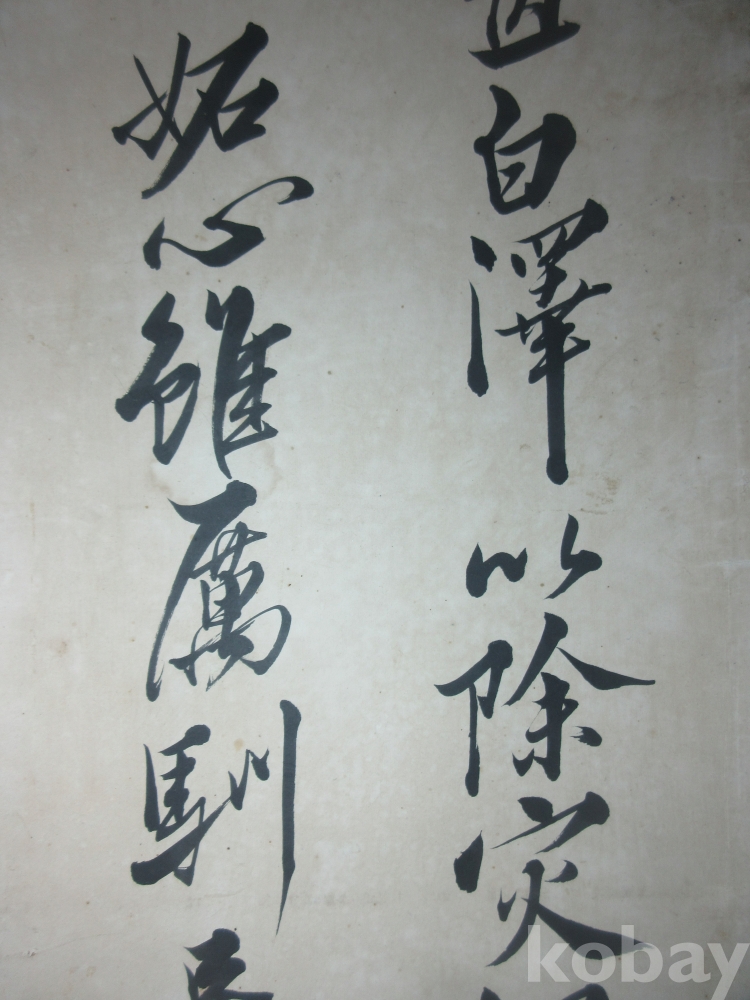 白澤以除灾
妬心雖厲馴
kobay